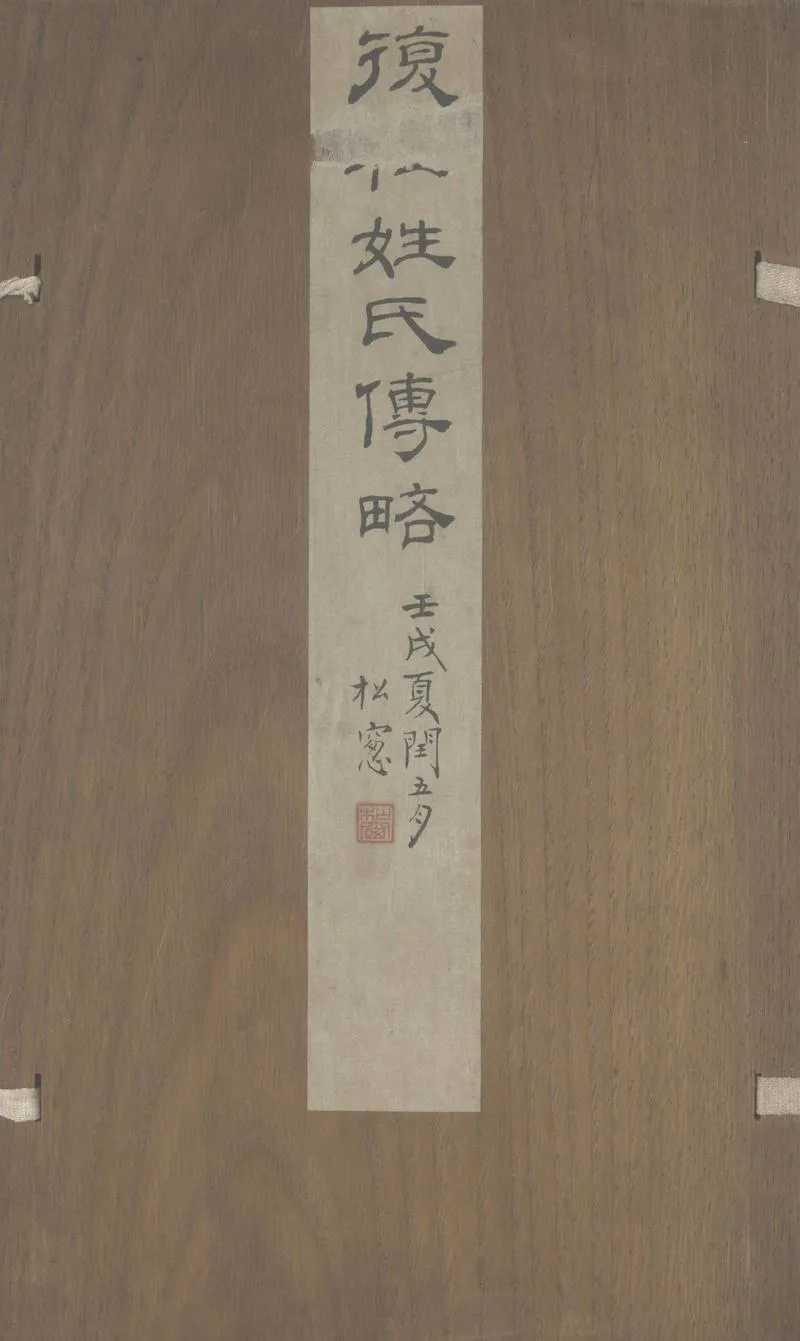 復姓氏傳略
壬戌夏閏五月
松窻